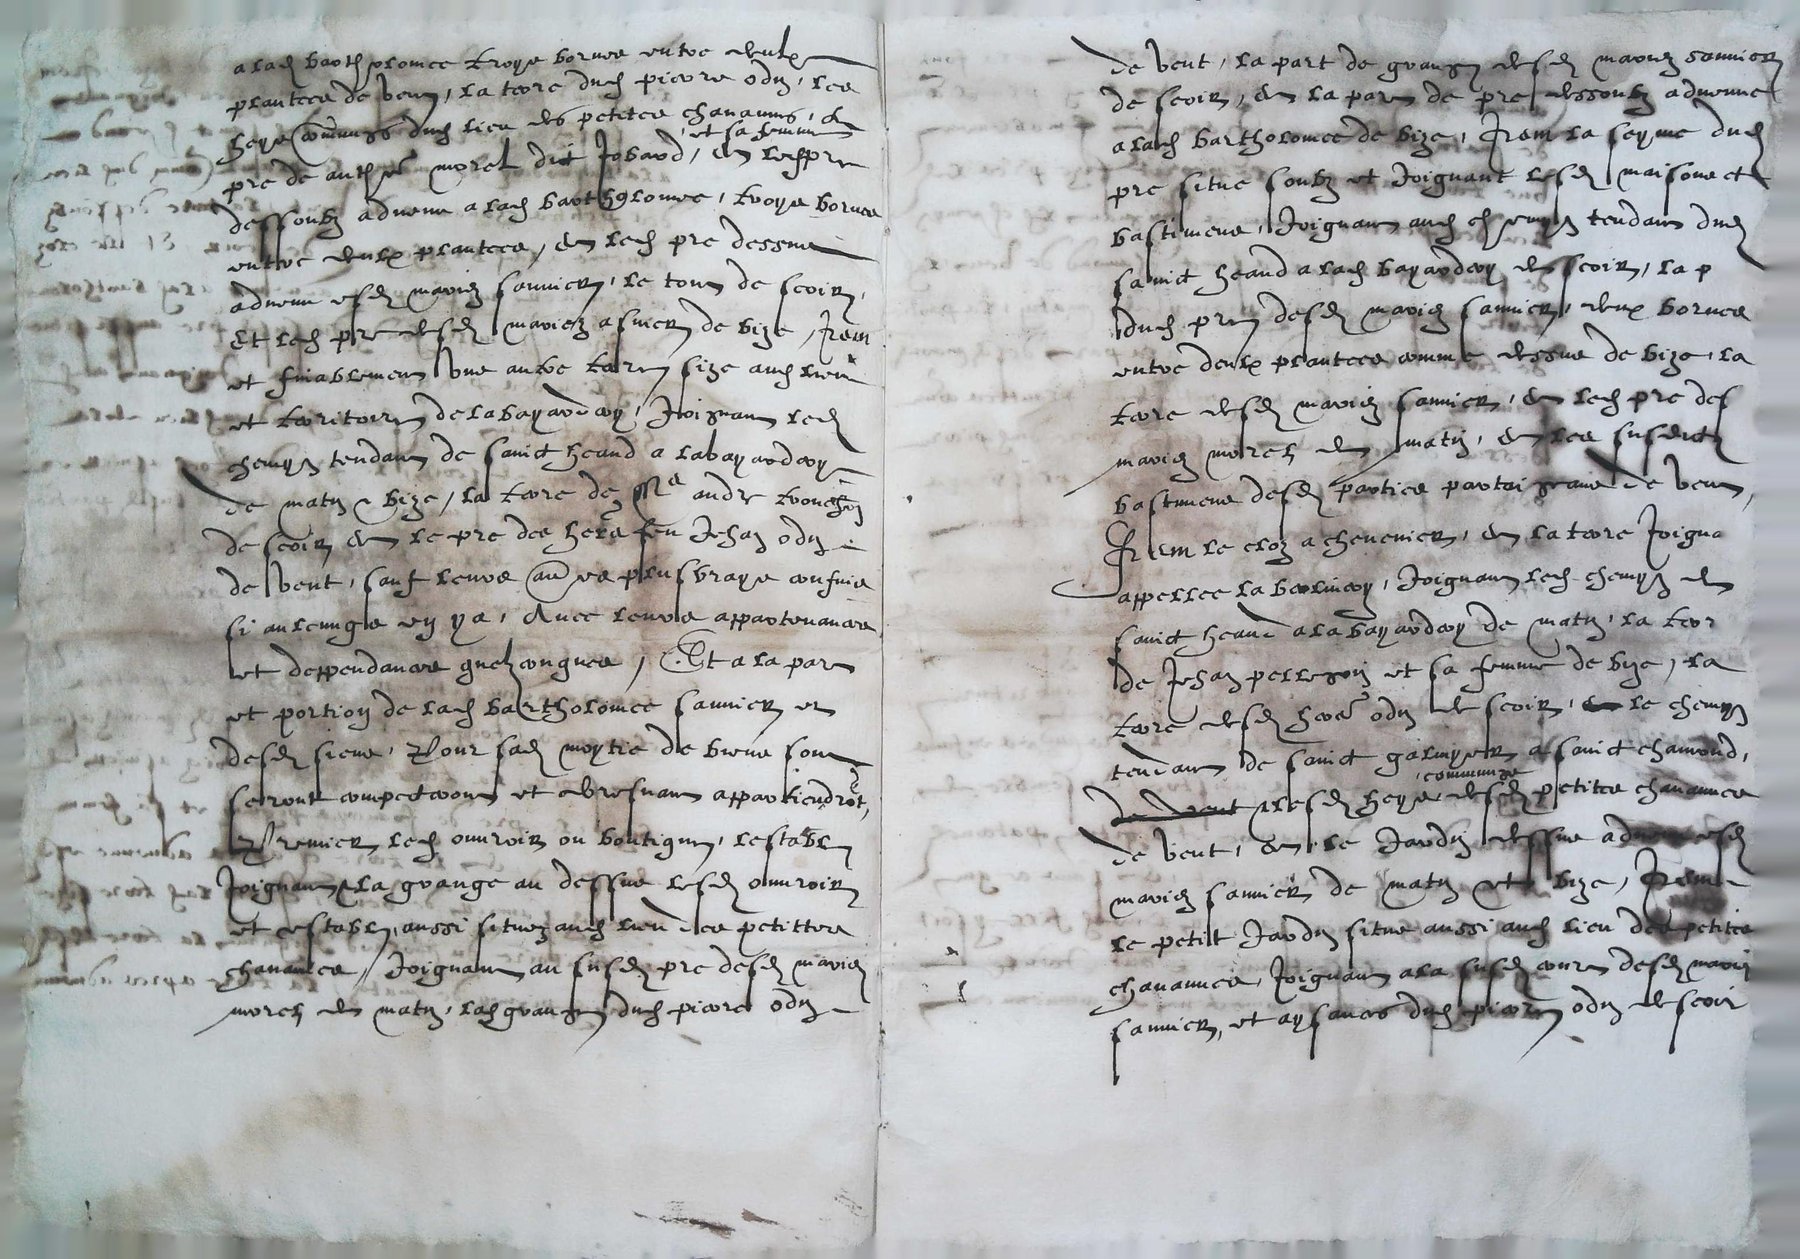 a lad bartholomee troys bornes entre deulx
plantees de vent, la terre dud pierre odin, les
heys communs dud lieu des petites chanaulx, &
et sa femme
pre de anth morel dit Jobard, & led pre
dessoubz advenu a lad bartholomee, troys bornes
entre deulx plantees, & led pre dessus
advenu esd mariez saunier, le tout de soir,
Et led pre desd mariez asnier de bize, Item
et finablement une autre terre size aud lieu
et territoire de la bayardery, Joignant led
chemyn tendant de sainct heand a la bayardery
de matin & bize, la terre de Me andre tronchon
de soir & le pre des hers feu Jehan odin
de vent, sauf leurs aultres plus vrays confins
si aulcungs en y a, Avec leurs appartenances
et deppendances quelconques, Et a la part
et portion de lad bartholomee saunier et
desd siens, Pour sad moytie de biens sont
seront competeront et desormais appartiendront,
Premier led ouvroir ou boutique, lestable
Joignant, la grange au dessus lesd ouvroir
et estable, aussi situez aud lieu des petittes
chanaulx, Joignant au susd pre desd mariez
morel de matin, lad grange dud pierre odin
de vent, la part de grange desd mariez saunier
de soir, & la part de pre dessoubz advenue
a lad bartholomee de bize, Item la seyme dud
pre situe soubz et Joignant lesd maisons et
bastimens, Joignant aud chemyn tendant dud
sainct heand a lad bayardery de soir, la p
dud pre desd mariez saunier, deux bornes
entre deulx plantees comme dessus de bize, la
terre desd mariez saunier, & led pre des
mariez morel de matin, & les susdictz
bastimens desd parties partaigeans de vent,
Item le cloz a chenevier, & la terre Joigna
appellee la berlinery, Joignant led chemyn de
sainct heand a la bayardery de matin, la terr
de Jehan pellegrin et sa femme de bize, la
terre desd hers odin de soir, & le chemyn
tendant de sainct galmyer a sainct chamond,
communge
de vent lesd heys desd petites chanaulx
de vent, & le Jardin dessus advenu esd
mariez saunier de matin et bize, Item
le petit Jardin situe aussi aud lieu des petites
chanaulx, Joignant a la susd court desd mariez
saunier, et aysances dud pierre odin de soir